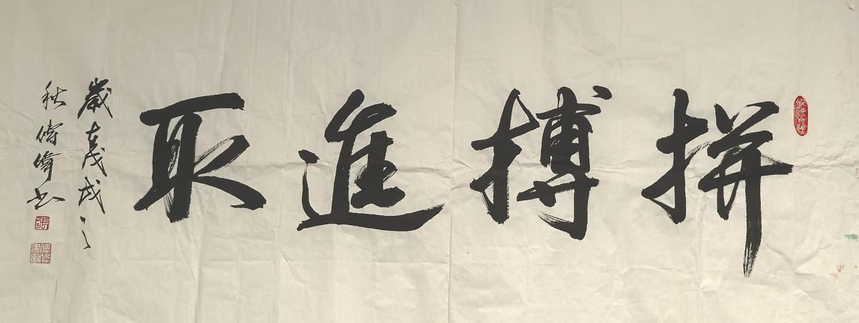 拼搏進取
歲在戊戌之
秋 偉書